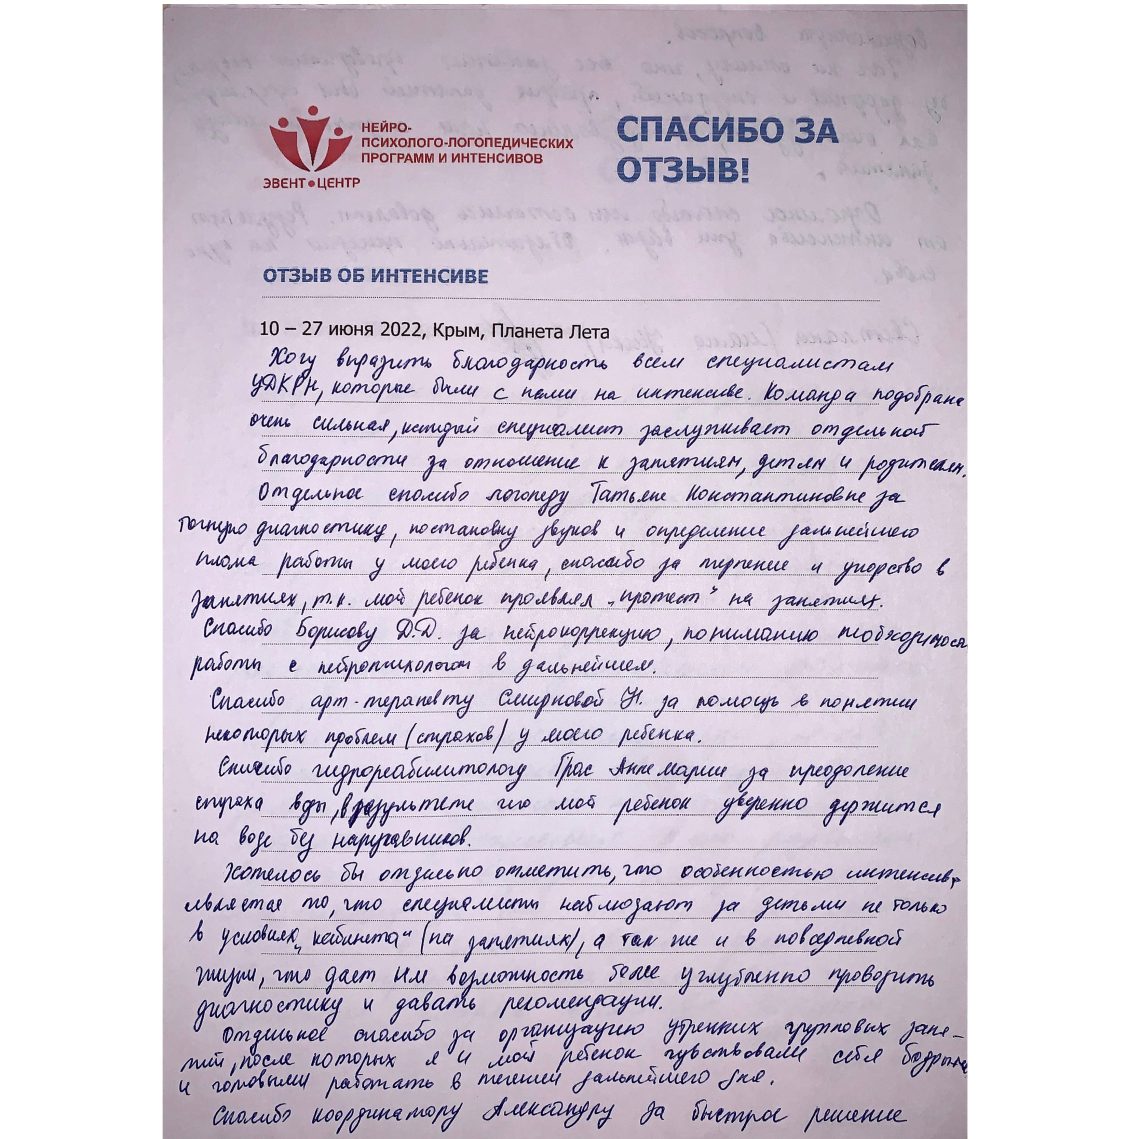 НЕЙРО-
ПСИХОЛОГО-ЛОГОПЕДИЧЕСКИХ
ПРОГРАММ И ИНТЕНСИВОВ
ЭВЕНТ●ЦЕНТР
СПАСИБО ЗА
ОТЗЫВ!
ОТЗЫВ ОБ ИНТЕНСИВЕ
10 – 27 июня 2022, Крым, Планета Лета
Хочу выразить благодарность всем специалистам
УДКРН, которые были с нами на интенсиве. Команда подобрана
очень сильная, каждый специалист заслуживает отдельной
благодарности за отношение к занятиям, детям и родителям.
Отдельное спасибо логопеду Татьяне Константиновне за
точную диагностику, постановку звуков и определение дальнейшего
плана работы у моего ребенка, спасибо за терпение и упорство в
занятиях, т.к. мой ребенок проявлял „протест" на занятиях.
Спасибо Борисову Д.Д. за нейрокоррекцию, пониманию необходимости
работы с нейропсихологом в дальнейшем.
Спасибо арт-терапевту Смирновой Н. за помощь в понятии
некоторых проблем (страхов) у моего ребенка.
Спасибо гидрореабилитологу Грас Аннемарии за преодоление
страха воды, в результате чего мой ребенок уверенно держится
на воде без нарукавников.
Хотелось бы отдельно отметить, что особенностью интенсива
является то, что специалисты наблюдают за детьми не только
в условиях „кабинета" (на занятиях), а так же и в повседневной
жизни, что дает им возможность более углубленно проводить
диагностику и давать рекомендации.
Отдельное спасибо за организацию утренних групповых заня-
тий, после которых я и мой ребенок чувствовали себя бодрыми
и готовыми работать в течении дальнейшего дня.
Спасибо координатору Александру за быстрое решение